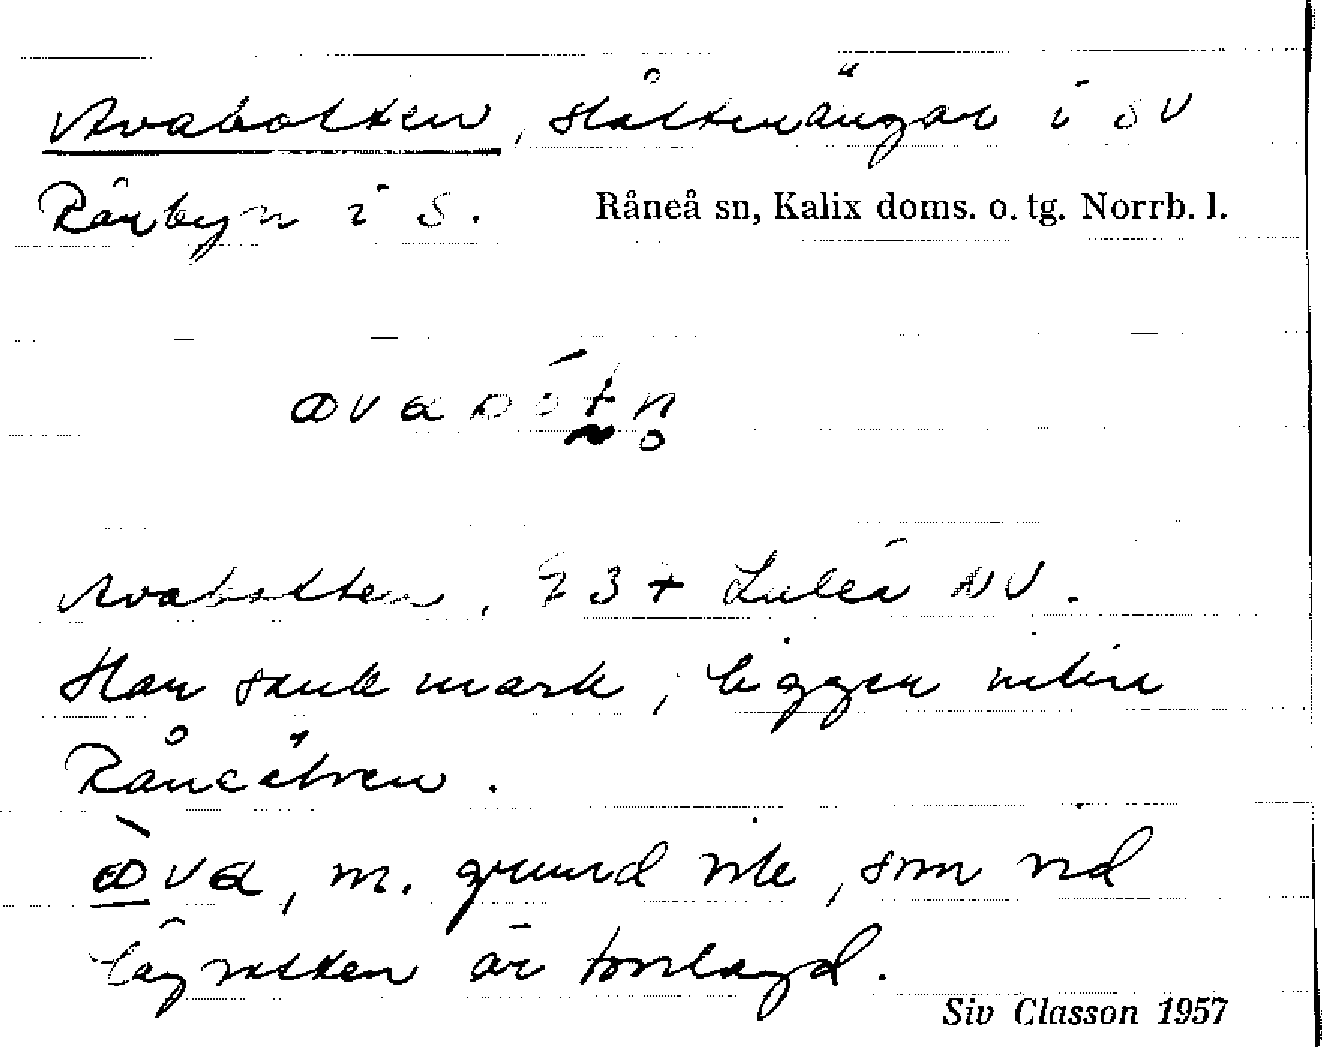 Avabotten, slåtterängar i SV
Rårbyn i S. Råneå sn, Kalix doms. o. tg. Norrb. l.
Avabotten, 73+ Luleå NV.
Har sank mark, ligger intill
Råneälven.
ava, m. grund vik, som vid
lågvatten är torrlagd.
Siv Classon 1957